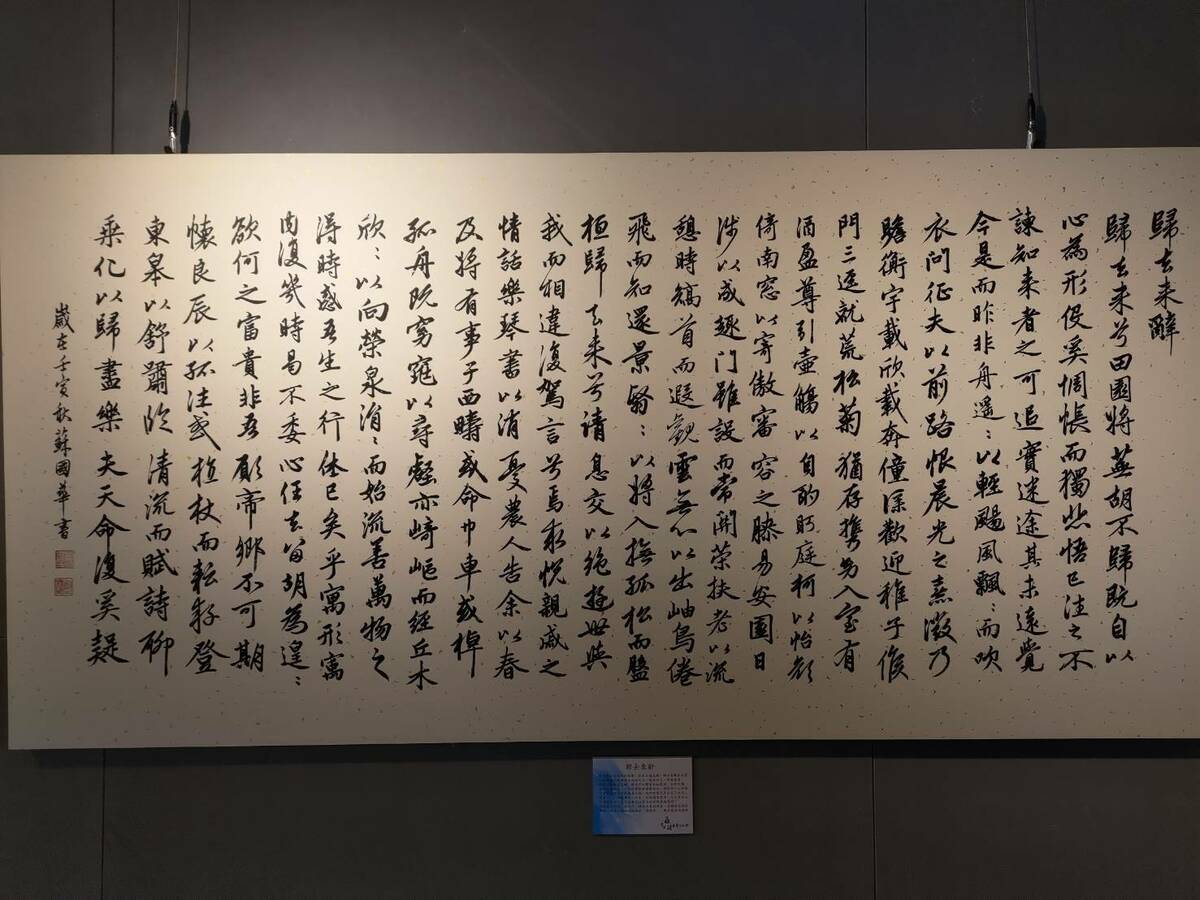 歸去来辭
歸去来兮田園將蕪胡不歸既自以
心為形役奚惆悵而獨悲悟已往之不
諫知来者之可追實迷途其未遠覺
今是而昨非舟遥：以輕颺風飄：而吹
衣問征夫以前路恨晨光之熹微乃
瞻衡宇載欣載奔僮僕歡迎稚子候
門三逕就荒松菊猶存攜幼入室有
酒盈尊引壺觴以自酌眄庭柯以怡顔
倚南窓以寄傲審容之膝易安園日
涉以成趣門雖設而常開策扶老以流
憩時矯首而遐觀雲無心以出岫鳥倦
飛而知還景翳：以將入撫孤松而盤
桓歸去来兮請息交以絶遊世與
我而相違復駕言兮焉求悅親戚之
情話樂琴書以消憂農人告余以春
及將有事乎西疇或命巾車或棹
孤舟既窈窕以尋壑亦崎嶇而經丘木
欣：以向榮泉涓：而始流善萬物之
得時感吾生之行休已矣乎寓形寓
内復幾時曷不委心任去留胡為遑：
欲何之富貴非吾願帝鄉不可期
懷良辰以孤往或植杖而耘耔登
東皋以舒嘯臨清流而賦詩聊
乘化以歸盡樂夫天命復奚疑
歲在壬寅秋蘇國華書
歸去來辭